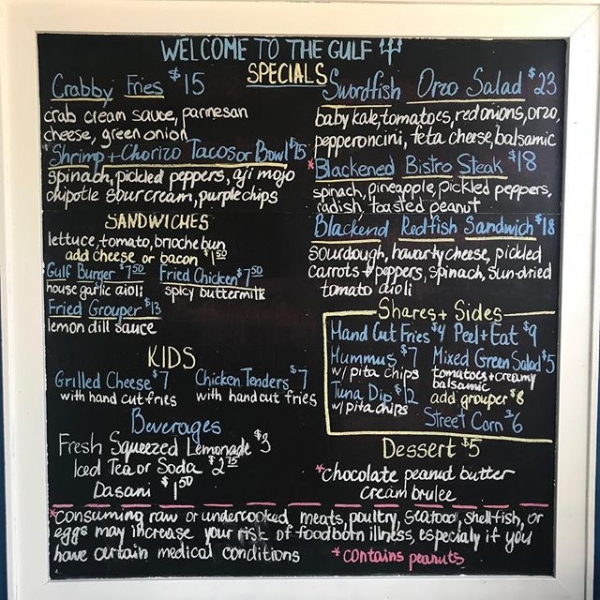 WELCOME TO THE GULF
SPECIALS
Crabby Fries $15
crab cream sauce, parmesan
cheese, green onion
Shrimp + Chorizo Tacos or Bowl $15
spinach, pickled peppers, aji mojo
chipotle sour cream, purple chips
SANDWICHES
lettuce, tomato, brioche bun
add cheese or bacon $1.50
Gulf Burger $7.50
house garlic aioli
Fried Chicken $7.50
spicy buttermilk
Fried Grouper $13
lemon dill sauce
KIDS
Grilled Cheese $7
with hand cut fries
Chicken Tenders $7
with hand cut fries
Beverages
Fresh Squeezed Lemonade $3
Iced Tea or Soda $2.75
Dasani $1.50
Swordfish Orzo Salad $23
baby kale, tomatoes, red onions, orzo,
pepperoncini, feta cheese, balsamic
*Blackened Bistro Steak $18
spinach, pineapple, pickled peppers,
radish, toasted peanut
Blackend Redfish Sandwich $18
sourdough, havarty cheese, pickled
carrots + peppers, spinach, sun-dried
tomato aioli
Shares + Sides
Hand Cut Fries $4
Peel + Eat $9
Hummus $7
w/ pita chips
Mixed Green Salad $5
tomatoes + creamy
balsamic
add grouper $8
Tuna Dip $12
w/ pita chips
Street Corn $6
Dessert $5
*chocolate peanut butter
cream brulee
*consuming raw or undercooked meats, poultry, seafood, shellfish, or
eggs may increase your risk of foodborn illness, especialy if you
have certain medical conditions
*contains peanuts